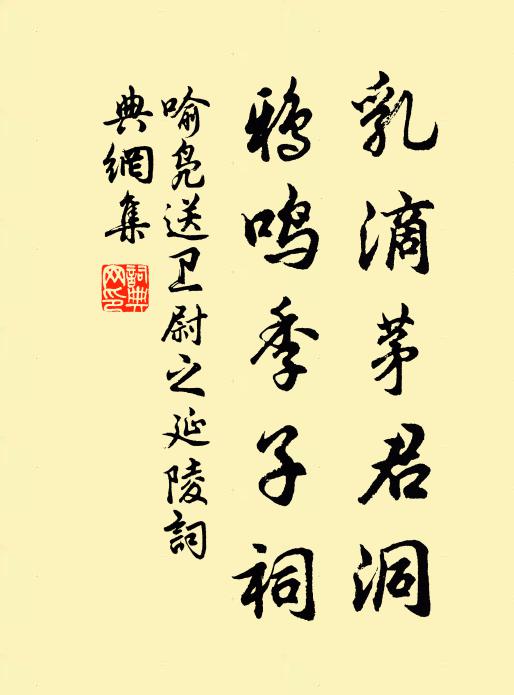 乳滴茅君洞
鸦鸣季子祠
喻凫送卫尉之延陵詞
典網集
詞典网印